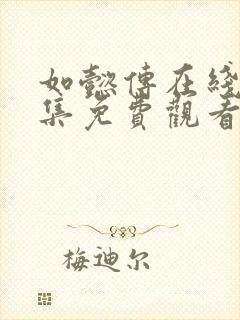 如懿傳在綫
集免費觀看
梅迪尔